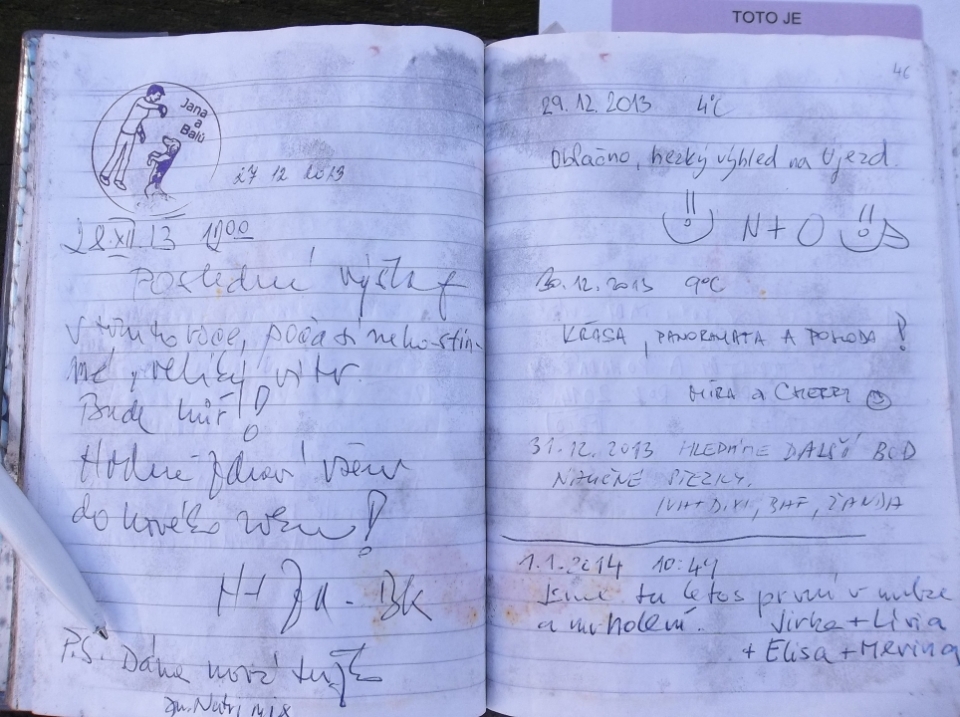 TOTO JE
Jana
a
Balú
27 12 2013
28.XII.13
Poslední výšlap
v tomto roce, počasí nehostin-
né, veliký vítr.
Bude hůř!
Hodně zdraví všem
do nového roku!
P.S. Dáme nová
46
29.12.2013 4°C
Oblačno, hezký výhled na Újezd.
N + O
30.12.2013 9°C
KRÁSA, PANORAMATA A POHODA!
MÍRA a CHERRY
31.12.2013 HLEDÁME DALŠÍ BOD
NAUČNÉ STEZKY.
1.1.2014 10:49
Jsme tu letos první v mlze
a mrholení. Jirka + Lívia
+ Elisa + Mervina